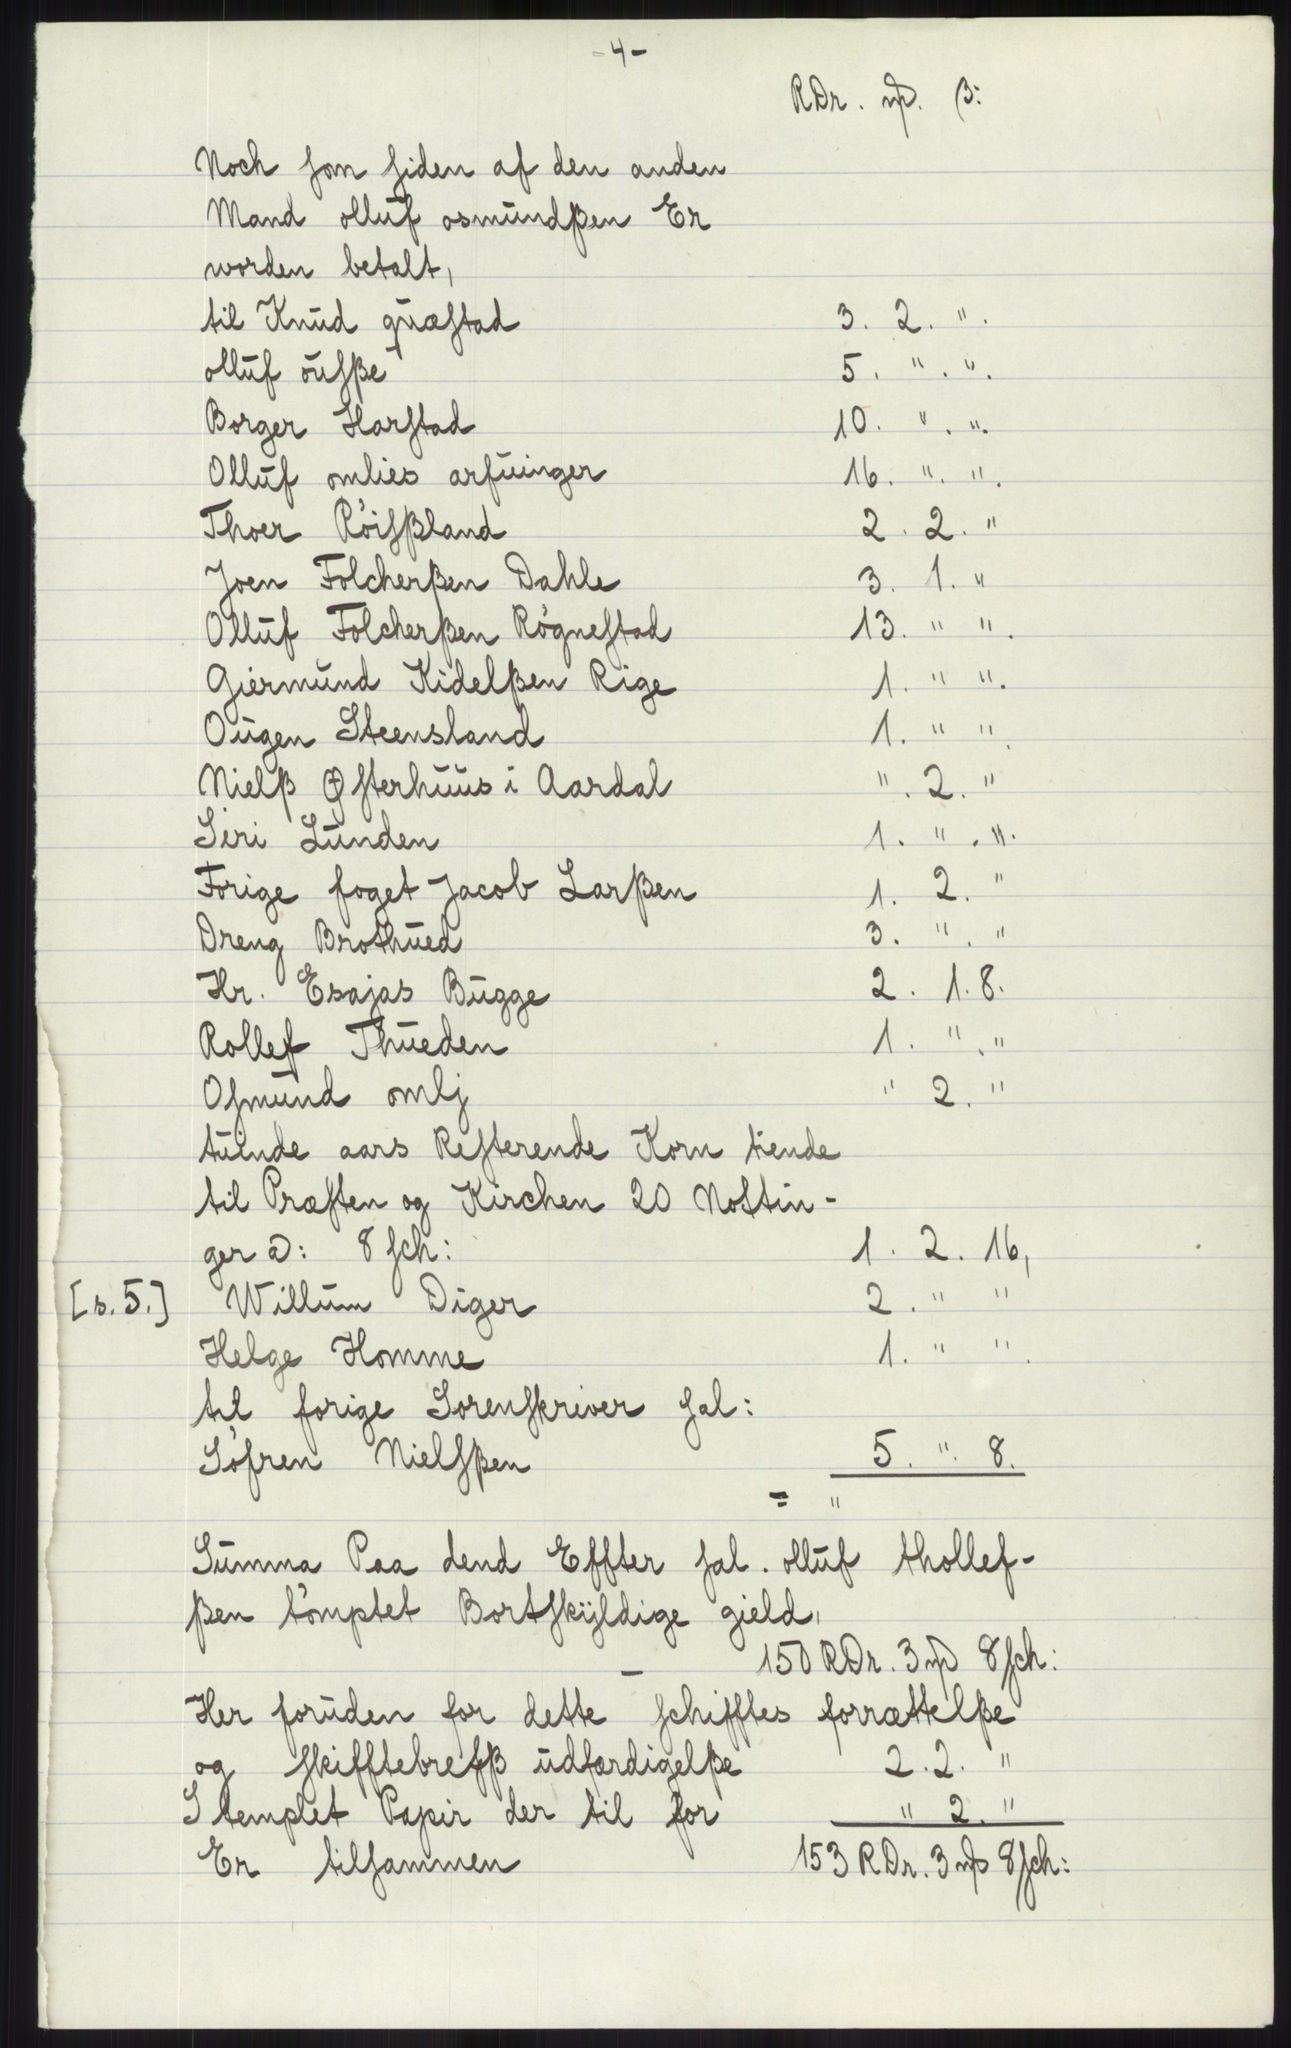 -4-
RDr. mȹ. β:
Noch som siden af den anden
Mand olluf osmundßen Er
worden betalt,
til Knud quæstad 3. 2. ".
olluf öusße 5. ". ".
Borger Harstad 10. ". ".
Olluf omlies arfuinger 16. ". ".
Thoer Röisßland 2. 2. "
Joen Folcherßen Dahle 3. 1. "
Olluf Folcherßen Rögnestad 13. " ".
Giermund Kidelßen Rige 1. " ".
Ougen Steensland 1. " ".
Nielß Østerhuus i Aardal ". 2. "
Siri Lunden 1. ". ".
Forige foget Jacob Larßen 1. 2. "
Dreng Brothued 3. ". "
Hr. Esajas Bugge 2. 1. 8.
Rollef Thueden 1. ". "
Osmund omlj " 2. "
tuinde aars Resterende Korn tiende
til Præsten og Kirchen 20 Nostin-
ger a: 8 sch: 1. 2. 16,
[s. 5.] Willum Diger 2. " "
Helge Homme 1. " ".
til forige Sorenskriver sal:
Söfren Nielsßen 5. ". 8.
= "
Summa Paa dend Effter sal. olluf thollef-
ßen tömptet Bortskÿldige gield,
— 150 RDr. 3 mȹ 8 sch:
Her foruden for dette schifftes forrættelße
og skifftebrefß udfærdigelße 2. 2. "
Stemplet Papir der til for " 2. "
Er tilsammen 153 RDr. 3 mȹ 8 sch: